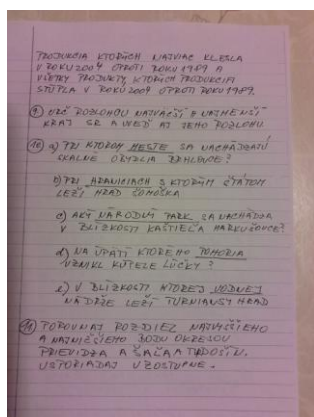 PRODUKCIA KTORÝCH NAJVIAC KLESLA
V ROKU 2004 OPROTI ROKU 1989 A
VŠETKY PRODUKTY, KTORÝCH PRODUKCIA
STÚPLA V ROKU 2004 OPROTI ROKU 1989.
9. URČ ROZLOHOU NAJVAČŠÍ A NAJMENŠÍ
KRAJ SR A UVEĎ AJ JEHO ROZLOHU
10. a) PRI KTOROM MESTE SA NACHÁDZAJÚ
SKALNÉ OBYDLIA BRHLOVCE?
b) PRI HRANICIACH S KTORÝM ŠTÁTOM
LEŽÍ HRAD ŠOMOŠKA
c) AKÝ NÁRODNÝ PARK SA NACHÁDZA
V BLÍZKOSTI KAŠTIEĽA MARKUŠOVCE?
d) NA ÚPATÍ KTORÉHO POHORIA
VZNIKLI KÚPELE LÚČKY?
e) V BLÍZKOSTI KTOREJ VODNEJ
NÁDRŽE LEŽÍ TURNIANSKY HRAD
11. POROVNAJ ROZDIEL NAJVYŠŠIEHO
A NAJNIŽŠIEHO BODU OKRESOV
PRIEVIDZA A ŠAĽA A TVRDOŠÍN.
USPORIADAJ VZOSTUPNE.